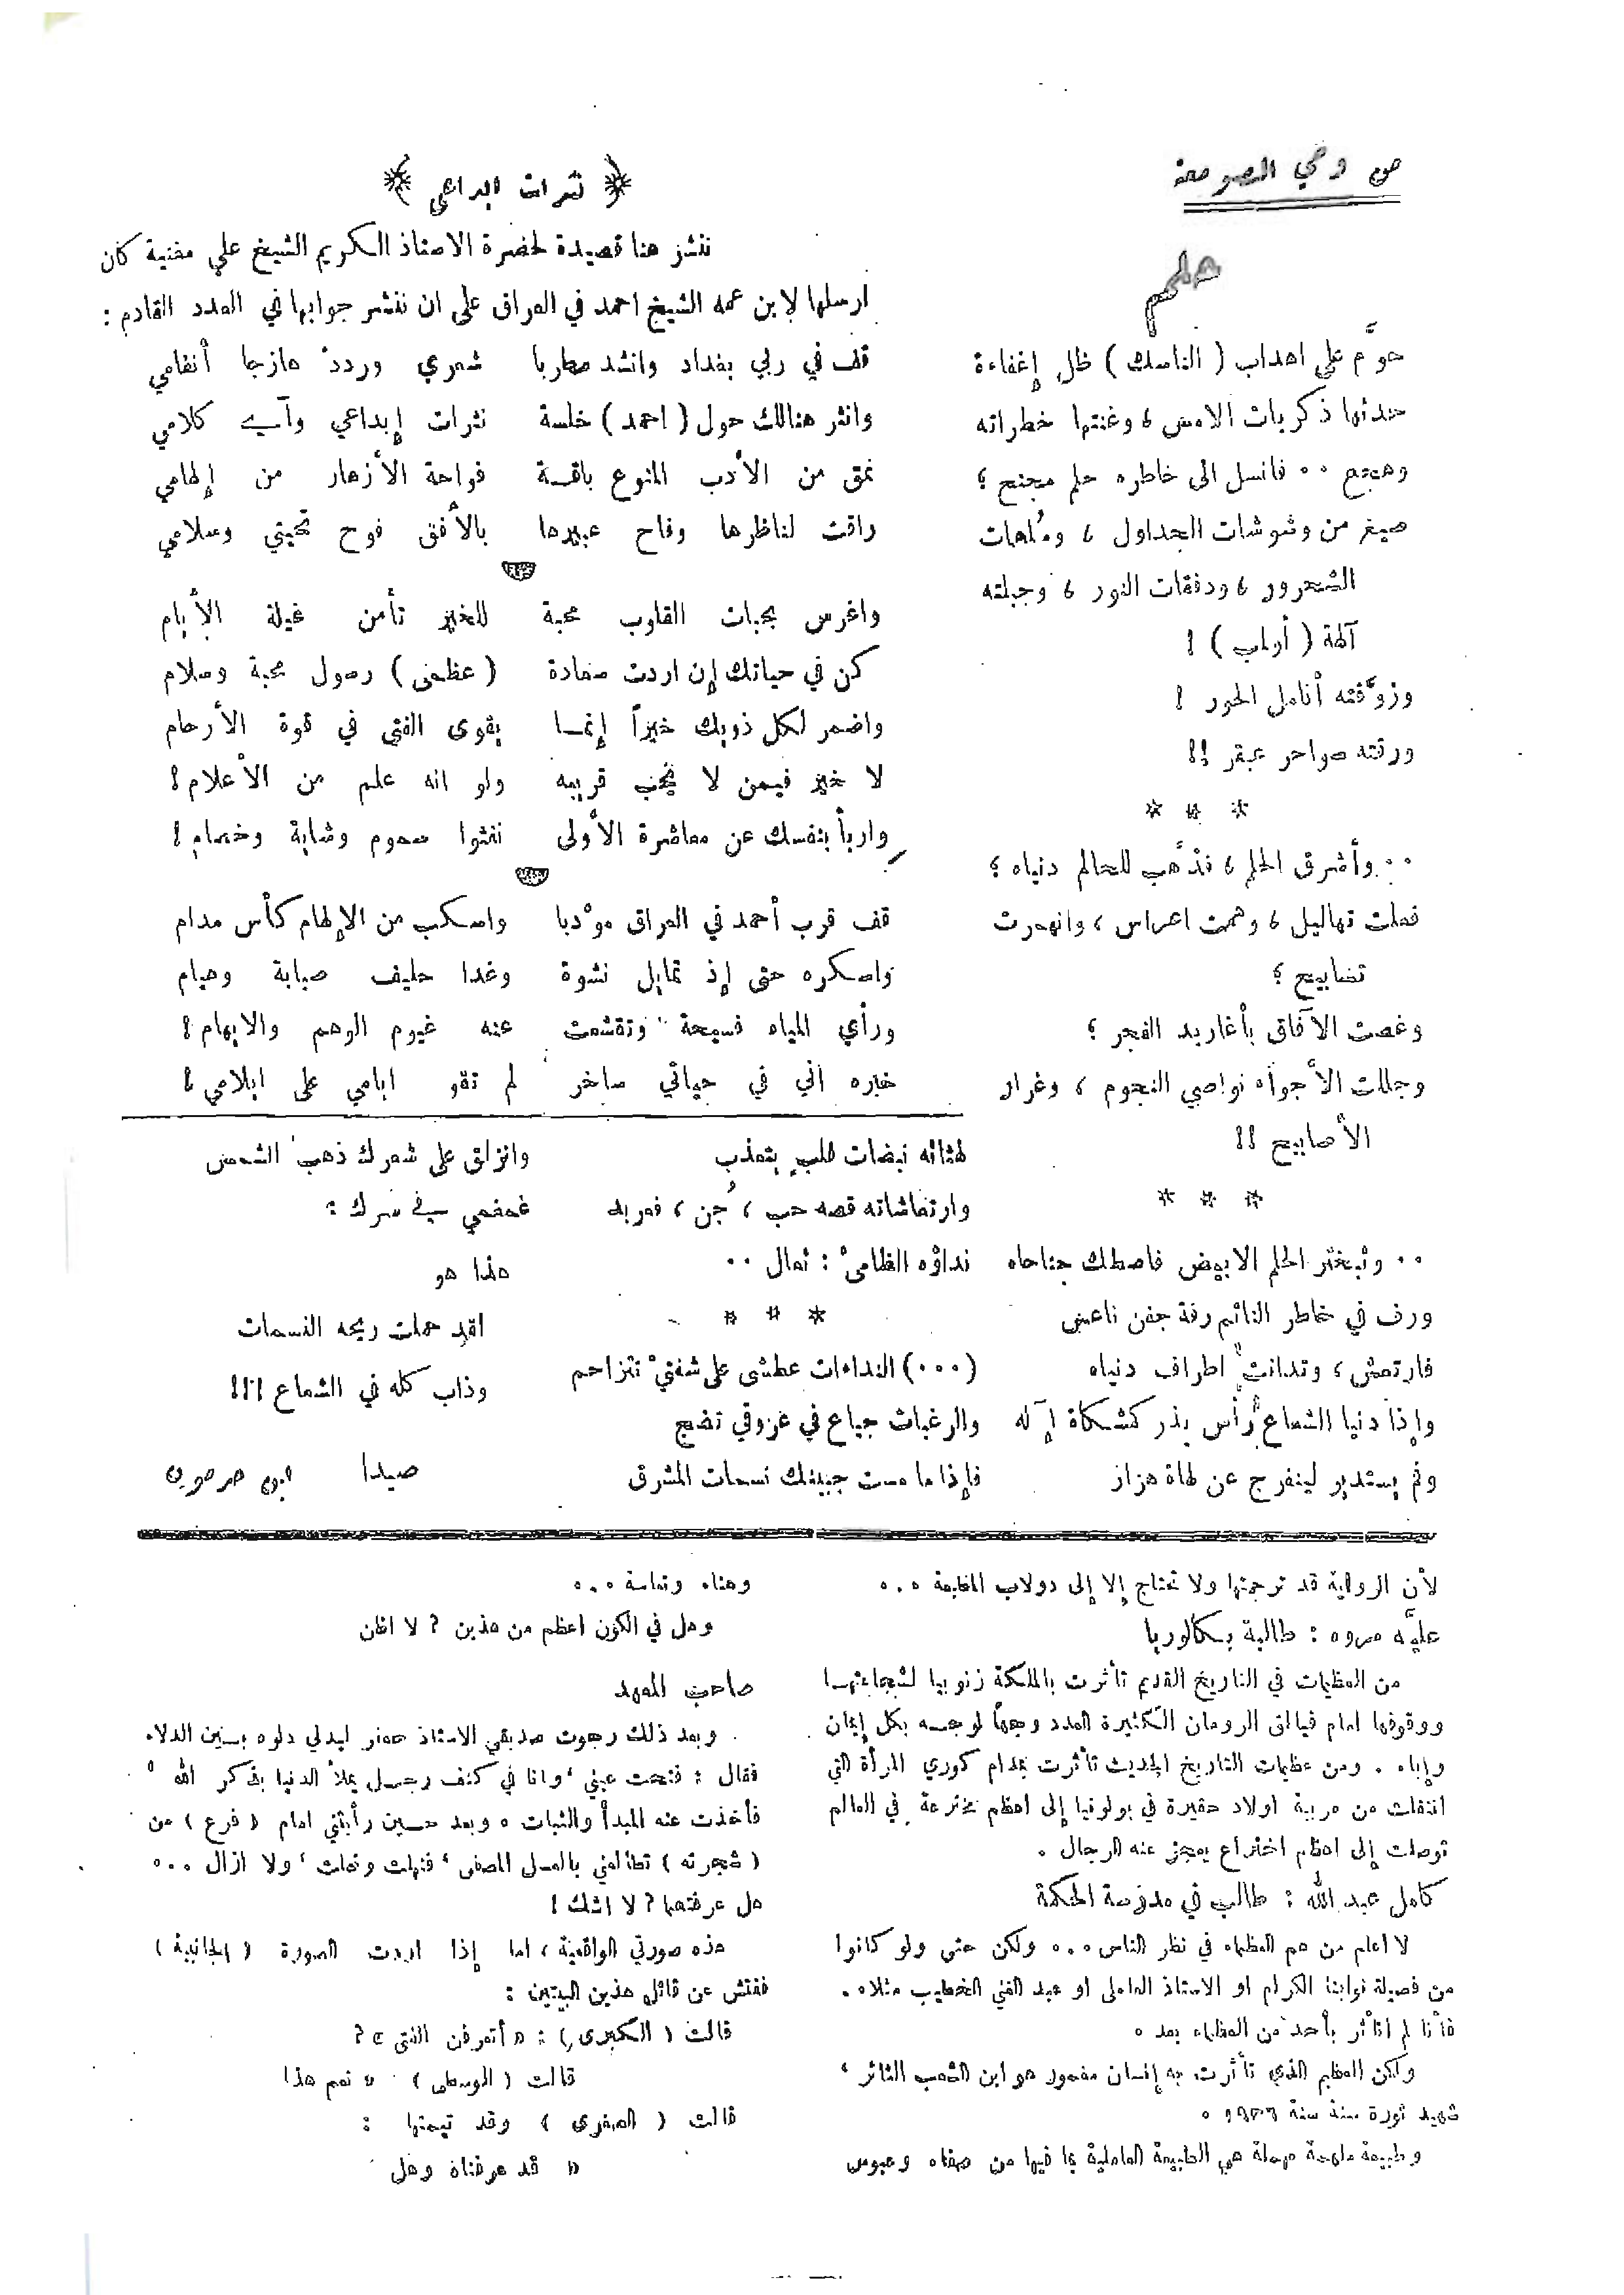 من وحي الصومعة
حلم
حوَّم على اهداب ( الناسك ) ظل إغفاءة
حدتها ذكريات الامس ، وغنتها خطراته
وهجع ٠٠ فانسل الى خاطره حلم مجنح ؛
صيغ من وشوشات الجداول ، وملهات
الشحرور ، ودفقات النور ، وجبلته
آلهة ( أولمب ) !
وزوَّقته أنامل الحور !
ورقته سواحر عبقر !!
* * *
٠٠ وأشرق الحلم ، فذهّب للحالم دنياه ؛
فعلت تهاليل ، وهمت اعراس ، وانهمرت
تضابيح ؛
وغصت الآفاق بأغاريد الفجر ؛
وجللت الأجواء نواصي النجوم ، وغرار
الأصابيح !!
* * *
٠٠ وتبختر الحلم الابيض فاصطك جناحاه
ورف في خاطر النائم رفة جفن ناعس
فارتعش ، وتدانت اطراف دنياه
وإذا دنيا الشعاع رأس بذر كمشكاة إآله
وفم يستدير لينفرج عن لهاة هزاز
لهثاته نبضات قلب يتعذب
وارتعاشاته قصه حب ، جُن ، فعربد
نداؤه الظامئ : تعال ٠٠
* * *
(٠٠٠) النداءات عطشى على شفتيّ تتزاحم
والرغبات جياع في عروقي تضج
فإذا ما مست جبينك نسمات المشرق
وانزلق على شعرك ذهب الشمس
غمغمي في سرك :
هذا هو
لقد حملت ريحه النسمات
وذاب كله في الشعاع !!!
صيدا ابن مرسون
﴿ ثمرات اليراعي ﴾
ننشر هنا قصيدة لحضرة الاستاذ الكريم الشيخ علي مغنية كان
ارسلها لابن عمه الشيخ احمد في العراق على ان ننشر جوابها في العدد القادم :
قف في ربي بغداد وانشد مطربا شعري وردد هازجا أنغامي
وانثر هنالك حول ( احمد ) خلسة نثرات إبداعي وآي كلامي
نمق من الأدب المنوع باقة فواحة الأزهار من إلهامي
راقت لناظرها وفاح عبيرها بالأفق فوح تحيتي وسلامي
واغرس بحبات القلوب محبة للخير تأمن غيلة الأيام
كن في حياتك إن اردت سعادة ( عظمى ) رسول محبة وسلام
واضمر لكل ذويك خيراً إنما يقوى الفتى في قوة الأرحام
لا خير فيمن لا يحب قريبه ولو انه علم من الأعلام !
واربأ بنفسك عن معاشرة الأولى نفثوا سموم وشاية وخصام !
قف قرب أحمد في العراق مؤدبا واسكب من الإلهام كأس مدام
واسكره حتى إذ تمايل نشوة وغدا حليف صبابة وهيام
ورأي الحياه فسيحة وتقشعت عنه غيوم الوهم والابهام !
خبره اني في حياتي ساخر لم تقو ايامي على ايلامي !
لأن الرواية قد ترجمتها ولا تحتاج إلا إلى دولاب المطبعة ٠٠٠
عليَّه مروه : طالبة بكالوريا
من العظيمات في التاريخ القديم تأثرت بالملكة زنوبيا لشجاعتها
ووقوفها امام فيالق الرومان الكثيرة العدد وجهاً لوجه بكل إيمان
وإباء . ومن عظيمات التاريخ الحديث تأثرت بمدام كوري المرأة التي
انتقلت من مربية اولاد حقيرة في بولونيا إلى اعظم مخترعة في العالم
توصلت إلى اعظم اختراع يعجز عنه الرجال .
كامل عبد الله : طالب في مدرسة الحكمة
لا اعلم من هم العظماء في نظر الناس ٠٠٠ ولكن حتى ولو كانوا
من فصيلة نوابنا الكرام او الاستاذ العاملى او عبد الغني الخطيب مثلاً .
فأنا لم اتأثر بأحد من العظماء بعد .
ولكن العظيم الذي تأثرت به إنسان مغمور هو ابن الشعب الثائر ،
شهيد ثورة سنة سنة ١٩٣٦ .
وطبيعة ملهمة مهملة هي الطبيعة العاملية بما فيها من صفاء وعبوس
وهناء وتعاسة ٠٠٠
وهل في الكون اعظم من هذين ؟ لا اظن
صاحب المعهد
وبعد ذلك رجوت صديقي الاستاذ جعفر ليدلي دلوه بين الدلاء
فقال : فتحت عيني ، وانا في كنف رجل يملأ الدنيا بفكر الله ،
فأخذت عنه المبدأ والثبات . وبعد حين رأيتني امام ( فرع ) من
( شجرته ) تطالعني بالعسل المصفى ، فنهلت ونهلت ، ولا ازال ٠٠٠
هل عرفتهما ؟ لا اشك !
هذه صورتي الواقعية ، اما إذا اردت الصورة ( الجانبية )
ففتش عن قائل هذين البيتين :
قالت ( الكبرى ) : « أتعرفن الفتى » ؟
قالت ( الوسطى ) « نعم هذا
قالت ( الصغرى ) وقد تيمتها :
« قد عرفناه وهل